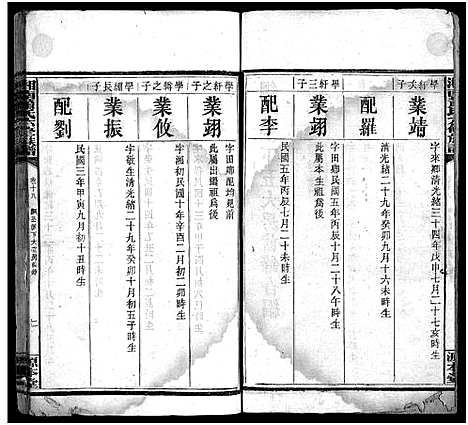 學軒次子
業靖
字來卿清光緒三十四年戊申七月二十七亥時生
配羅
清光緒二十九年癸卯九月十六未時生
學軒三子
業翊
字田卿民國五年丙辰二月二十八午時生
此屬本生雁為後
配李
民國五年丙辰七月二十未時生
學之子
業翊
字田卿配均見前
此屬出繼雁為後
學之子
業攸
字湘初民國十年辛酉二月初二卯時生
學細長子
業振
字敬生清光緒二十九年癸卯十月初五子時生
配劉
民國三年甲寅九月初十丑時生
卷十九
七
源本堂